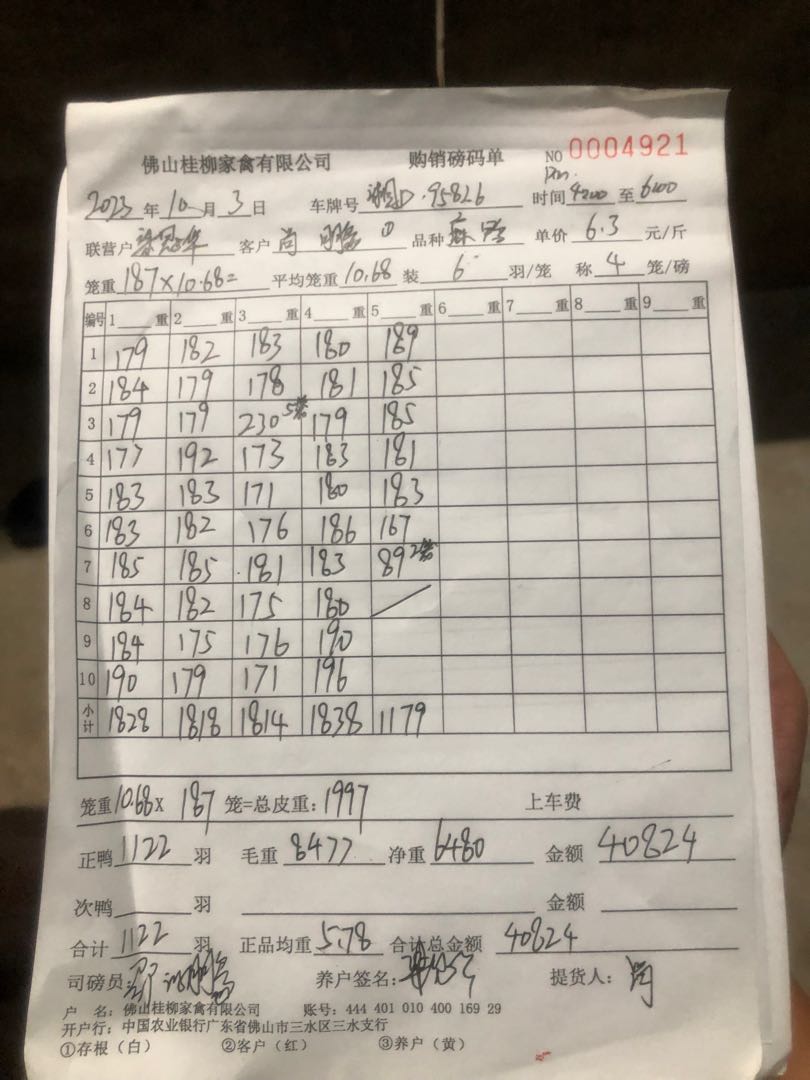 佛山桂柳家禽有限公司 购销磅码单 NO 0004921
2023 年 10 月 3 日 车牌号 湘D.95826 时间 4200 至 6400
联营户 客户 尚 品种 麻 单价 6.3 元/斤
笼重 187×10.68= 平均笼重 10.68 装 6 羽/笼 称 4 笼/磅
编号 1 重 2 重 3 重 4 重 5 重 6 重 7 重 8 重 9 重
1 179 182 183 180 189
2 184 179 178 181 185
3 179 179 230 5笼 179 185
4 177 192 173 183 181
5 183 183 171 180 183
6 183 182 176 186 167
7 185 185 181 183 89 2笼
8 184 182 175 180
9 184 175 176 190
10 190 179 171 196
小计 1828 1818 1814 1838 1179
笼重 10.68 × 187 笼=总皮重: 1997 上车费
正鸭 1122 羽 毛重 8477 净重 6480 金额 40824
次鸭 羽 金额
合计 1122 羽 正品均重 5.78 合计总金额 40824
司磅员 养户签名: 提货人: 尚
户 名: 佛山桂柳家禽有限公司 账号: 444 401 010 400 169 29
开户行: 中国农业银行广东省佛山市三水区三水支行
①存根(白) ②客户(红) ③养户(黄)